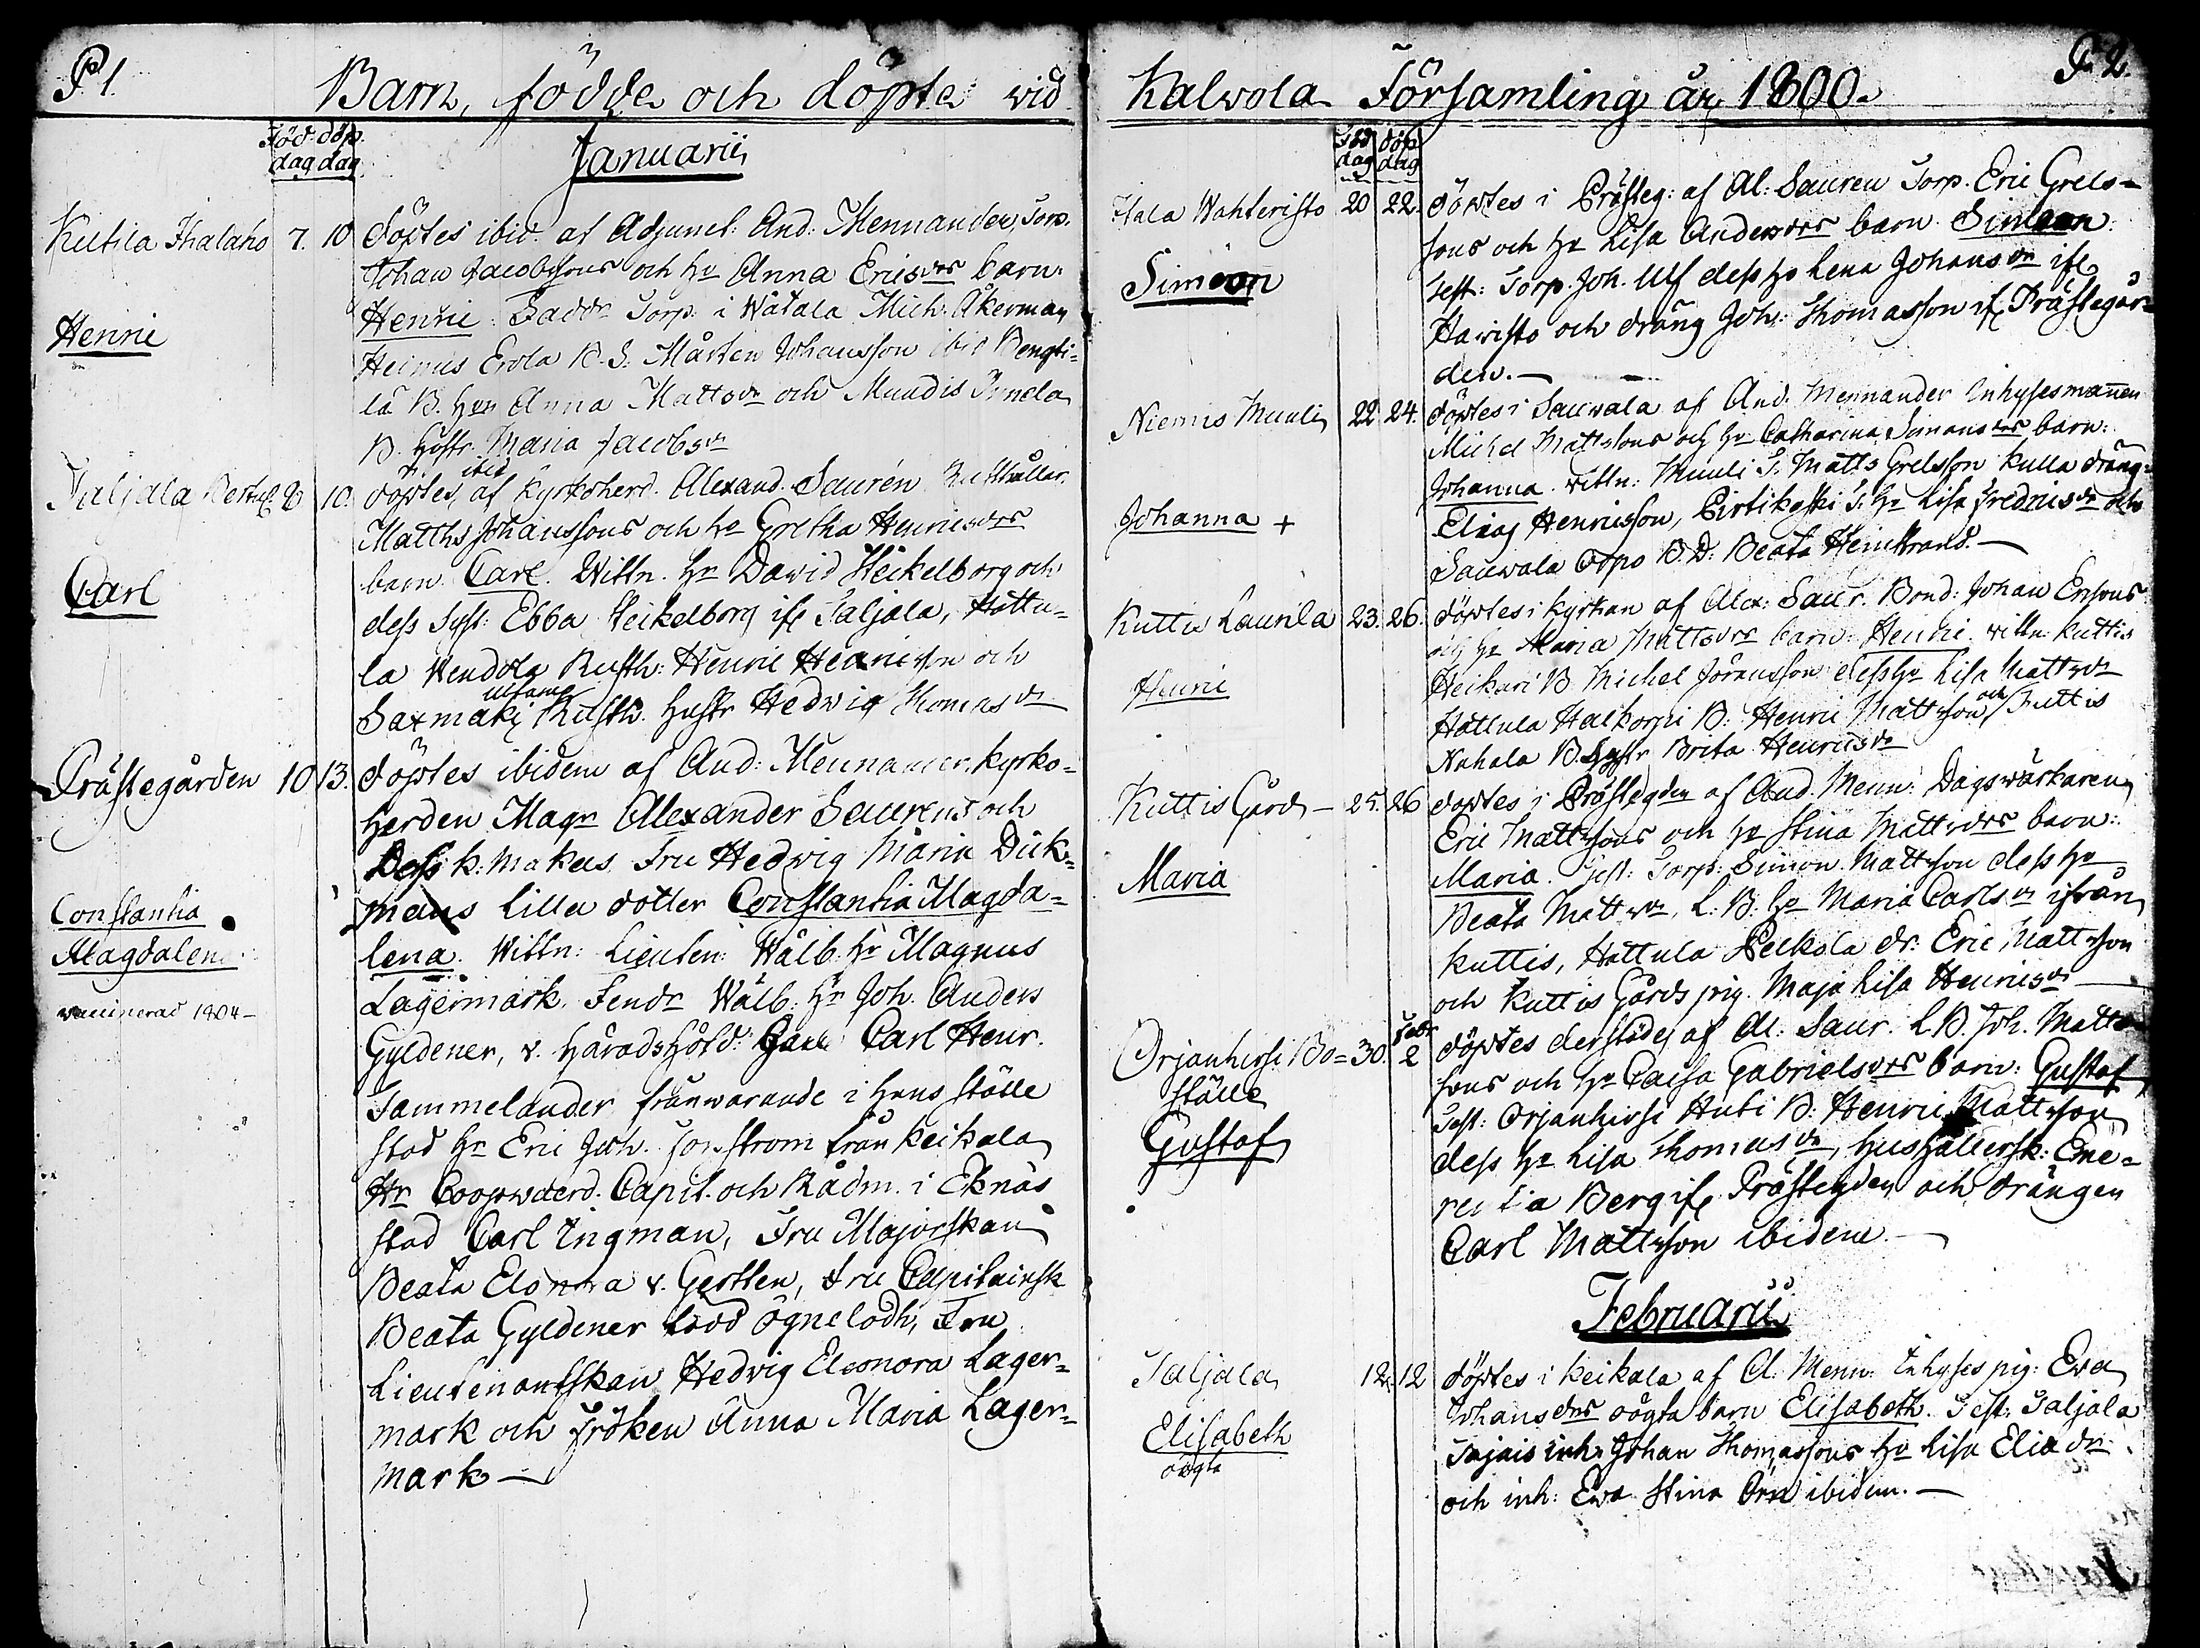 P. 1.
Barn, födde och döpte wid
Född dag
döp. dag
Januarii
Kutila Ihalaho 7. 10 döptes ibid. af Adjunct. And. Mennander, Torp.
Johan Jacobssons och hu Anna Ericsdrs barn:
Henric
Henric. Fadd. Torp. i Wätala Mich. Åkerman
Heinus Erola B. S. Mårten Johansson ibid Bengti=
lä B. hu Anna Mattsdr och Mundis
B. hustr. Maria Jacobsdr
Taljala 8 10. döptes, ibid af Kyrkoherd. Alexand. Saurén Rusthållar.
Matths Johanssons och hu Gretha Henricsdrs
Carl
barn Carl. Wittn. Hr David Heikelborg och
dess Syst: Ebba Heikelborg ifr Taljala, Hattu=
la Wendola Rusth: Henric Henricsson och
Saxmäki Rusth. hustr Hedwig Thomasdr
Prästegården 10 13. döptes ibidem af And: Mennander, kyrko=
herden Magr Alexander Saurens och
Dess k. Makas Fru Hedwig Maria Dick=
mans lilla dotter Constantia Magda=
Constantia
Magdalena
lena. Wittn: Lieuten: Wälb. hr Magnus
vaccinerad 1804 -
Lagermark, Fendr Wälb: hr Joh. Anders
Gyldener, v. häradshöfd: Carl Henr.
Tammelander frånwarande i hans ställe
stod hr Eric Joh. från Keikala
Hr Coopwaerd. Capit. och Rådm. i Eknäs
stad Carl Ingman, Fru Majorskan
Beata Elonora v. Gertten, Fru Capitainsk
Beata Gyldener född Ögnelodh, Fru
Lieutenantskan Hedvig Eleonora Lager=
mark och Fröken Anna Maria Lager=
mark —
P. 2.
Kalvola Församling år 1800.
Föd dag
döp dag
Itala Wahteristo 20 22. döptes i Prästeg: af Al: Sauren Torp. Eric Grels=
sons och hu Lisa Andersdrs barn Simeon:
Simeon
Test: Torp. Joh. Ulf dess hu Lena Johansdr ifr
Haristo och dräng Joh: Thomasson ifr Prästegår=
den. —
Niemis Muuli 22 24. döptes i Sauvala af And. Mennander Inhysesmannen
Michel Mattssons och hu Catharina Simonsdrs barn:
Johanna +
Johanna. wittn: Muuli T. Matts Grelsson Kulla dräng
Elias Henricsson, Pirtikoski T. hu Lisa Fredricsdr och
Sauvala Topo B. D: Beata Heinstrand. —
Kuttis Laurila 23. 26. döptes i kyrkan af Alex: Saur. Bond: Johan Ersons
och hu Maria Mattsdrs barn: Henric. wittn: Kuttis
Henric
Heikari B. Michel Jöransson dess hu Lisa Mattsdr
Hattula Halkorpi B: Henric Mattsson och Kuttis
Nahala B. hustr Brita Henricsdr
Kuttis Gård — 25. 26 döptes i Prästegden af And. Menn: Dagswärkaren
Eric Mattssons och hu Stina Mattsdrs barn:
Maria
Maria. Test: Torp: Simon Mattsson dess hu
Beata Mattsdr, L. B. hu Maria Carlsdr ifrån
Kuttis, Hattula Pelkola dr: Eric Mattsson
och Kuttis Gårds pig. Maja Lisa Henricsdr —
Orjanhirsi Bo= 30. Febr 2 döptes derstädes af Al: Saur. L. B. Joh. Matts=
ställe
sons och hu Caisa Gabrielsdrs barn: Gustaf
Gustaf
Test: Orjanhirsi Anti B: Henric Mattsson
dess hu Lisa Thomasdr, Hushållersk: Eme=
rentia Berg ifr Prästegden och drängen
Carl Mattsson ibidem. —
Februarii
Taljala 12. 12 döptes i Keikala af A. Menn: Inhyses pig: Eva
Johansdrs oägta barn Elisabeth. Test: Taljala
Elisabeth
oägta
Tajais inh: Johan Thomassons hu Lisa Eliædr
och inh: Eva Stina Örn ibidem. —